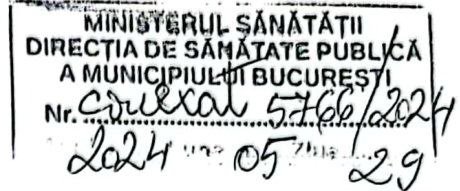 MINISTERUL SĂNĂTĂȚII
DIRECȚIA DE SĂNĂTATE PUBLICĂ
A MUNICIPIULUI BUCUREȘTI
Nr. 5766/2024
2024 luna 05 ziua 29